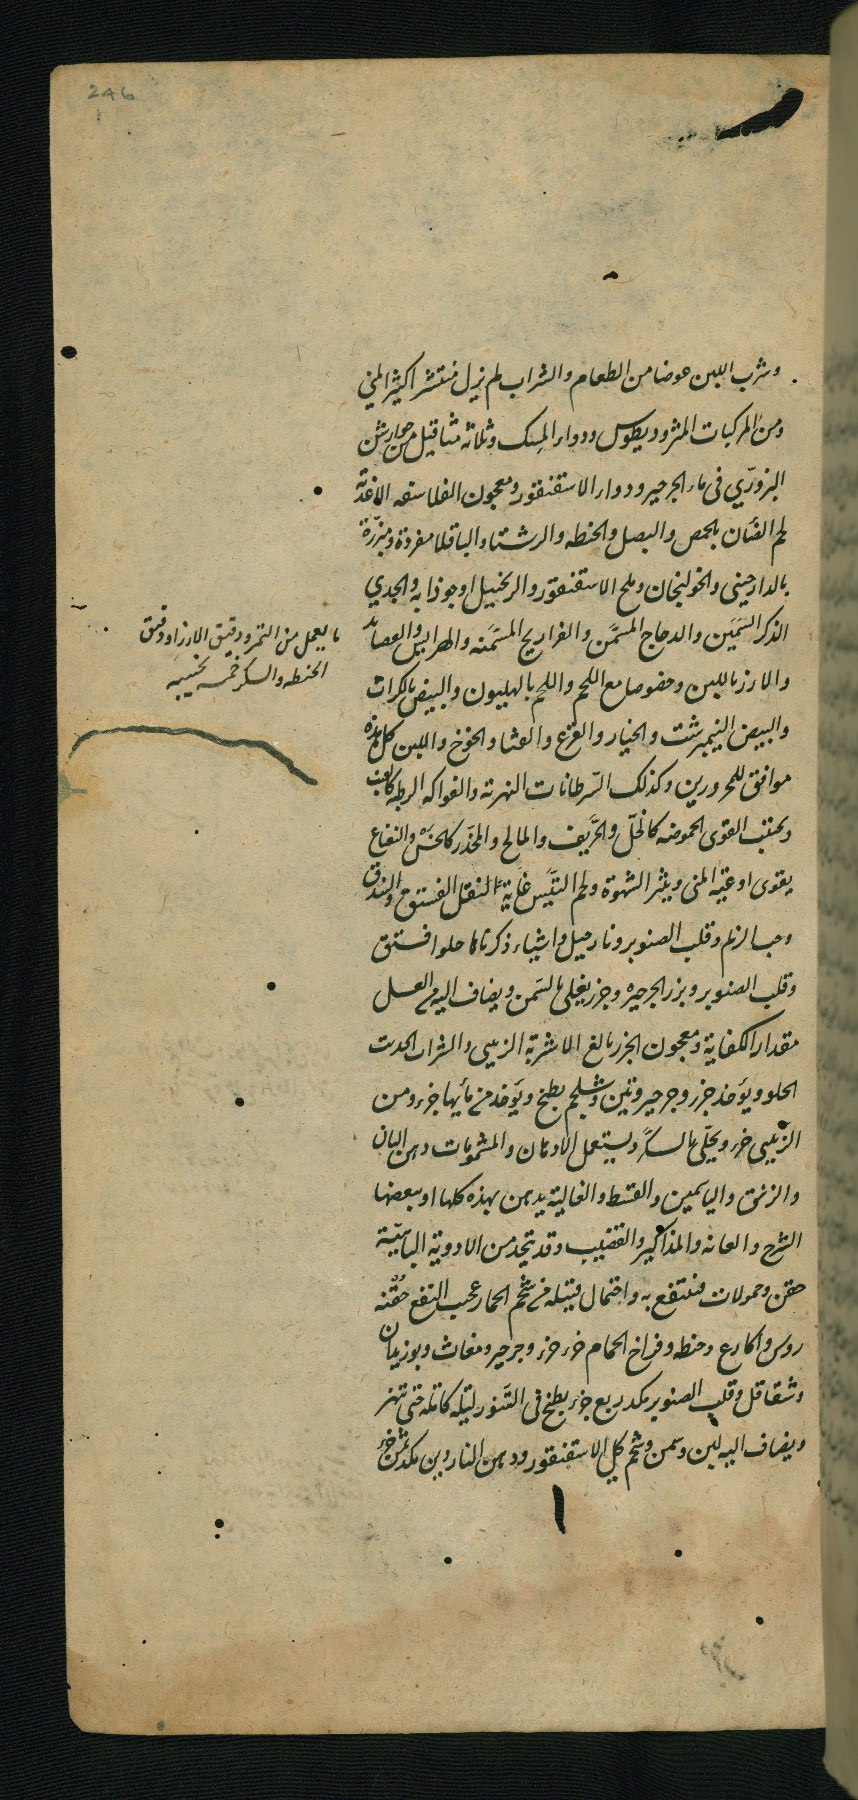 246
وشرب اللبن عوضا من الطعام والشراب لم يزل منتشرا كثير المني
ومن المركبات المثروديطوس ودواء المسك وثلاثة مثاقيل من جوارشن
البزوري في ماء الجرجير ودواء الاسقنقور ومعجون الفلاسفه الاغذيه
لحم الضأن بالحمص والبصل والحنطه والرشتا والباقلا مفردة ومبزرة
بالدارچيني والخولنجان وملح الاسقنقور والزنجبيل او جوذابه والجدي
الذكر السمين والدجاج المسمن والفراريج المسمنه والهرايس والعصايد
والارز باللبن وخصوصا مع اللحم واللحم بالهليون والبيض بالكراث
والبيض النيمبرشت والخيار والقرع والقثا والخوخ واللبن كل هذه
موافق للمحرورين وكذلك السرطانات النهرية والفواكه الرطبه كالعنب
ويجتنب القوى الحموضه كالخل والحريف والمالح والمخدر كالخس والنعناع
يقوى اوعية المنى ويثير الشهوة ولحم التيس غاية النقل الفستق والبندق
وحب الزلم وقلب الصنوبر ونارجيل واشياء ذكرناها حلوا فستق
وقلب الصنوبر وبزر الجرجير وجزر يغلى بالسمن ويضاف اليه من العسل
مقدار الكفاية ومعجون الجزر بالغ الاشربة الزبيبى والشراب الحديث
الحلو ويؤخذ جزر وجرجير وتين وشلجم يطبخ ويؤخذ من مائها جزء ومن
الزبيبى جزء ويحلى بالسكر ويستعمل الادهان والمشمومات دهن البان
والزنبق والياسمين والقسط والغالية يدهن بهذه كلها او ببعضها
الشرج والعانه والمذاكير والقضيب وقد يتخذ من الادوية الباهيّة
حقن وحمولات فينتفع به واحتمال فتيله من شحم الحمار عجيب النفع حقنه
روس واكارع وحنطه وفراخ الحمام جزء جزء وجرجير ومغاث وبوزيدان
وشقاقل وقلب الصنوبر مكد ربع جزء يطبخ فى التنور ليلة كاملة حتى تهتر
ويضاف اليه لبن وسمن وشحم كلي الاسقنقور ودهن الناردين مكد ثمن جزء
ما يعمل من التمر ودقيق الارز او دقيق
الحنطه والسكر